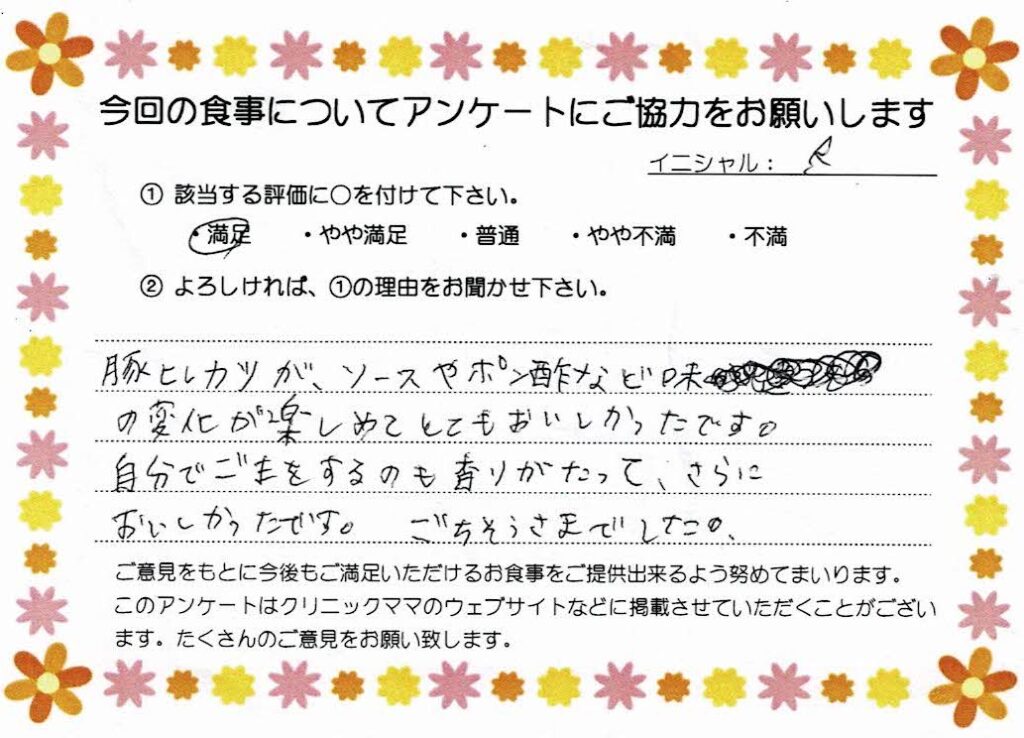 今回の食事についてアンケートにご協力をお願いします
イニシャル：
① 該当する評価に○を付けて下さい。
・満足 ・やや満足 ・普通 ・やや不満 ・不満
② よろしければ、①の理由をお聞かせ下さい。
豚ヒレカツが、ソースやポン酢など味
の変化が楽しめてとてもおいしかったです。
自分でごまをするのも香りがたって、さらに
おいしかったです。 ごちそうさまでした。
ご意見をもとに今後もご満足いただけるお食事をご提供出来るよう努めてまいります。
このアンケートはクリニックママのウェブサイトなどに掲載させていただくことがござい
ます。たくさんのご意見をお願い致します。